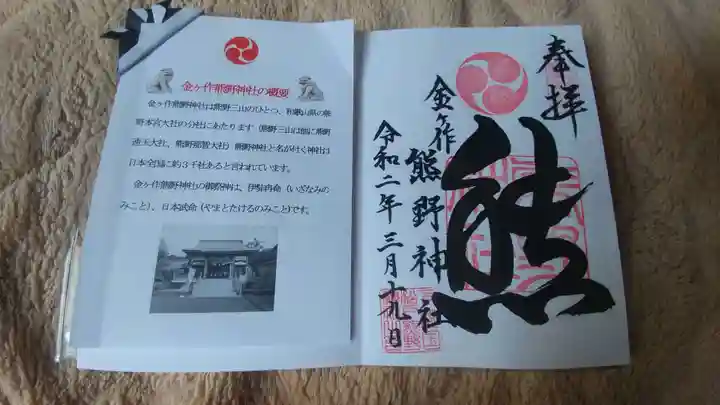 金ヶ作熊野神社の概要
金ヶ作熊野神社は熊野三山のひとつ、和歌山県の熊
野本宮大社の分社にあたります(熊野三山は他に熊野
速玉大社、熊野那智大社)熊野神社と名が付く神社は
日本全国に約3千社あると言われています。
金ヶ作熊野神社の御祭神は、伊邪冉命(いざなみの
みこと)、日本武命(やまとたけるのみこと)です。
奉拝
熊
金ヶ作
熊野神社
令和二年三月十九日